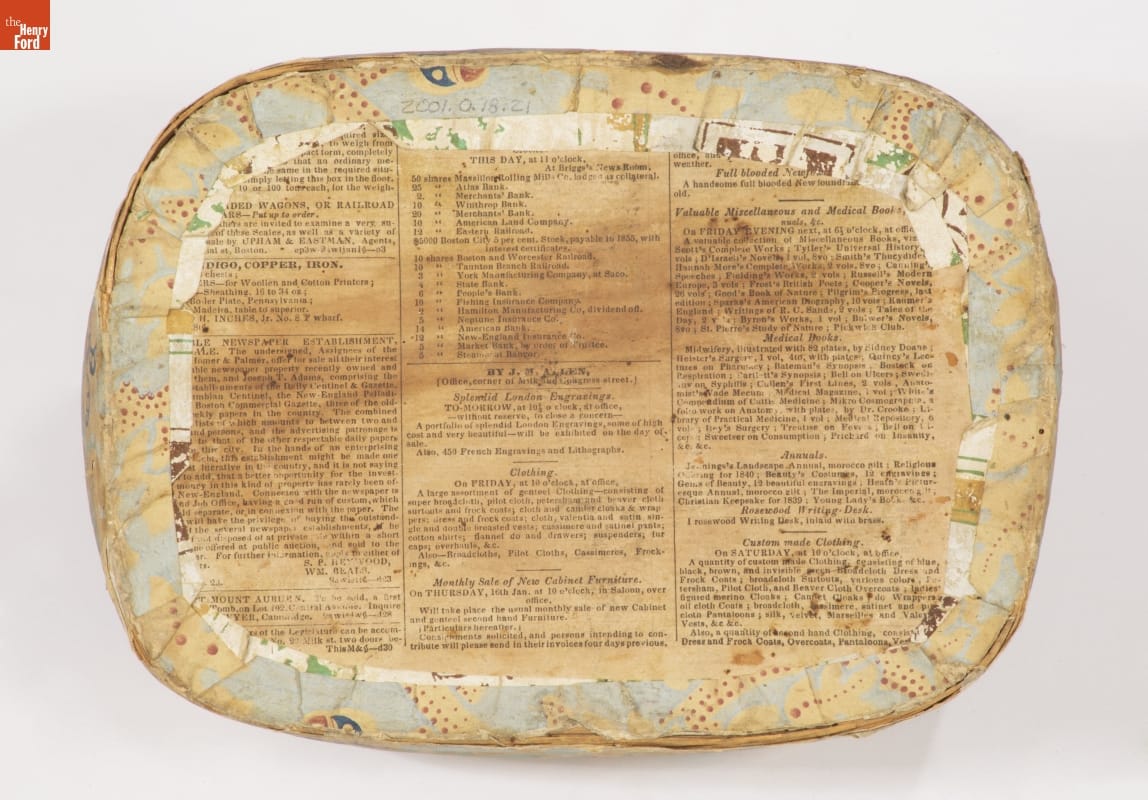 the
Henry
Ford
2001.0.18.21
quired siz
to weigh from
pact form, completely
that an ordinary me-
same in the required situ-
simply letting this box in the floor.
10 or 100 tons each, for the weigh-
DED WAGONS, OR RAILROAD
ARS—Put up to order.
thers are invited to examine a very su-
of these Scales, as well as a variety of
sale by UPHAM & EASTMAN, Agents,
st, Boston.
DIGO, COPPER, IRON.
chests;
RS—for Woollen and Cotton Printers;
—Sheathing, 16 to 34 oz;
Boiler Plate, Pennsylvania;
Madeira, table to superior.
H. INCHES, Jr. No. 8 wharf.
LE NEWSPAPER ESTABLISHMENT,
ALE. The undersigned, Assignees of the
Homer & Palmer, offer for sale all their interest
the newspaper property recently owned and
them, and Joseph T. Adams, comprising the
establishments of the Daily Centinel & Gazette,
umbian Centinel, the New-England Palladi-
Boston Commercial Gazette, three of the old-
weekly papers in the country. The combined
lists of which amounts to between two and
nd persons, and the advertising patronage is
to that of the other respectable daily papers
this city. In the hands of an enterprising
this establishment might be made one
st lucrative in the country, and it is not saying
to add, that a better opportunity for the invest-
money in this kind of property has rarely been of-
New-England. Connected with the newspaper is
nd Job Office, having a good run of custom, which
ld separate, or in connexion with the paper. The
will have the privilege of buying the outstand-
the several newspaper establishments, if the
nd disposed of at private sale within a short
be offered at public auction, and sold to the
For further information, apply to either of
rs.
S. P. HEYWOOD,
WM. BEALS.
T MOUNT AUBURN. To be sold, a first
Tomb, on Lot 192, Central Avenue. Inquire
WYER, Cambridge.
rs of the Legislature can be accom-
No. 22 Milk st. two doors be-
ThisM&—d30
THIS DAY, at 11 o'clock,
At Briggs's News Room,
50 shares Massillon Rolling Mills Co. lodged as collateral.
25 " Atlas Bank.
2 " Merchants' Bank.
10 " Winthrop Bank.
20 " Merchants' Bank.
10 " American Land Company.
12 " Eastern Railroad.
$5000 Boston City 5 per cent. Stock, payable in 1855, with
interest certificates.
10 shares Boston and Worcester Railroad.
10 " Taunton Branch Railroad.
2 " York Manufacturing Company, at Saco.
4 " State Bank.
6 " People's Bank.
10 " Fishing Insurance Company.
2 " Hamilton Manufacturing Co, dividend off.
5 " Neptune Insurance Co.
14 " American Bank.
12 " New-England Insurance Co.
5 " Market Bank, by order of Trustee.
5 " Steamboat Bangor.
BY J. M. ALLEN,
[Office, corner of Milk and Congress street.]
Splendid London Engravings.
TO-MORROW, at 10½ o'clock, at office,
—without reserve, to close a concern—
A portfolio of splendid London Engravings, some of high
cost and very beautiful—will be exhibited on the day of
sale.
Also, 450 French Engravings and Lithographs.
Clothing.
On FRIDAY, at 10 o'clock, at office,
A large assortment of genteel Clothing—consisting of
super broadcloth, pilot cloth, petersham and beaver cloth
surtouts and frock coats; cloth and camlet cloaks & wrap
pers; dress and frock coats; cloth, valentia and satin sin-
gle and double breasted vests; cassimere and satinet pants;
cotton shirts; flannel do and drawers; suspenders, fur
caps; overhauls, &c.
Also—Broadcloths, Pilot Cloths, Cassimeres, Frock-
ings, &c.
Monthly Sale of New Cabinet Furniture.
On THURSDAY, 16th Jan. at 10 o'clock, in Saloon, over
office,
Will take place the usual monthly sale of new Cabinet
and genteel second hand Furniture.
[Particulars hereafter.]
Consignments solicited, and persons intending to con-
tribute will please send in their invoices four days previous.
office, and
weather.
Full blooded Newfo
A handsome full blooded Newfoundland
old.
Valuable Miscellaneous and Medical Books,
nuals, &c.
On FRIDAY EVENING next, at 6½ o'clock, at office,
A valuable collection of Miscellaneous Books, viz:
Scott's Complete Works; Tytler's Universal History,
vols; D'Israeli's Novels, 1 vol, 8vo; Smith's Thucydides
Hannah More's Complete Works, 2 vols, 8vo; Canning's
Speeches; Fielding's Works, 2 vols; Russell's Modern
Europe, 3 vols; Frost's British Poets; Cooper's Novels,
26 vols; Good's Book of Nature; Pilgrim's Progress, last
edition; Sparks's American Biography, 10 vols; Raumer's
England; Writings of R. C. Sands, 2 vols; Tales of the
Day, 2 vols; Byron's Works, 1 vol; Bulwer's Novels,
8vo; St. Pierre's Study of Nature; Pickwick Club.
Medical Books.
Midwifery, illustrated with 82 plates, by Sidney Doane;
Heister's Surgery, 1 vol, 4to, with plates; Quincy's Lec-
tures on Pharmacy; Bateman's Synopsis; Bostock on
Respiration; Synopsis; Bell on Ulcers; Swed-
on Syphilis; Cullen's First Lines, 2 vols; Anato-
mist's Vade Mecum; Medical Magazine, 1 vol; White's
Compendium of Cutt. Medicine; Mikro Cosmographia, a
folio work on Anatomy, with plates, by Dr. Crooke; Li-
brary of Practical Medicine, 1 vol; Medical Repository,
vol; Surgery; Treatise on Fevers; Bell on
Sweetser on Consumption; Prichard on Insanity,
&c. &c.
Annuals.
Jennings's Landscape Annual, morocco gilt; Religious
Offering for 1840; Beauty's Costumes, 12 engravings;
Gems of Beauty, 12 beautiful engravings; Heath's Pictur-
esque Annual, morocco gilt; The Imperial, morocco gilt;
Christian Keepsake for 1839; Young Lady's Book, &c.
Rosewood Writing-Desk.
1 rosewood Writing Desk, inlaid with brass.
Custom made Clothing.
On SATURDAY, at 10 o'clock, at office,
A quantity of custom made Clothing, consisting of blue,
black, brown, and invisible green Broadcloth Dress and
Frock Coats; broadcloth Surtouts, various colors; Pe-
tersham, Pilot Cloth, and Beaver Cloth Overcoats; ladies'
figured merino Cloaks; Camlet Cloaks; do Wrappers
oil cloth Coats; broadcloth, cassimere, satinet and pi
cloth Pantaloons; silk, velvet, Marseilles and Valen
Vests, &c &c.
Also, a quantity of second hand Clothing, consist
Dress and Frock Coats, Overcoats, Pantaloons, Ves